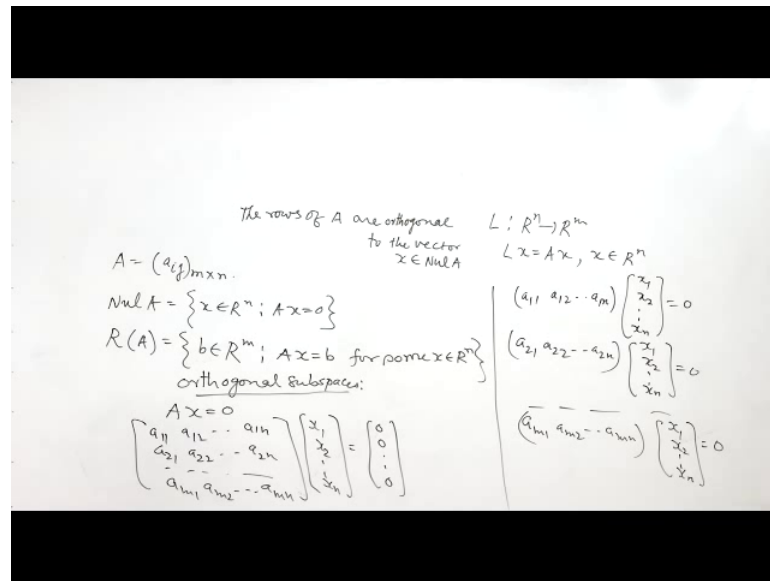 The rows of A are orthogonal
to the vector
x ∈ Nul A
A = (aij)m×n.
Nul A = {x ∈ R^n ; Ax=0}
R(A) = {b ∈ R^m ; Ax=b for some x ∈ R^n}
orthogonal subspaces:
Ax = 0
(a11 a12 ... a1n) (x1) = (0)
(a21 a22 ... a2n) (x2) (0)
- - - - (⋮) (⋮)
(am1 am2 ... amn) (xn) (0)
L : R^n → R^m
Lx = Ax, x ∈ R^n
(a11 a12 ... a1n) (x1 x2 ⋮ xn) = 0
(a21 a22 ... a2n) (x1 x2 ⋮ xn) = 0
- - - -
(am1 am2 ... amn) (x1 x2 ⋮ xn) = 0